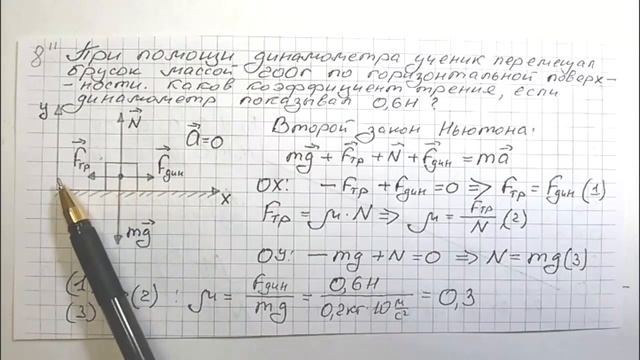 8" При помощи динамометра ученик перемещал
брусок массой 200г по горизонтальной поверх-
-ности. Каков коэффициент трения, если
динамометр показывал 0,6Н?
y N⃗ a⃗=0 Второй закон Ньютона:
F⃗тр F⃗дин mg⃗ + F⃗тр + N⃗ + F⃗дин = ma⃗
x OX: −Fтр + Fдин = 0 ⇒ Fтр = Fдин (1)
Fтр = μ·N ⇒ μ = Fтр/N (2)
mg⃗ OY: −mg + N = 0 ⇒ N = mg (3)
(1) (3) (2) : μ = Fдин/mg = 0,6Н/0,2кг·10 м/с² = 0,3